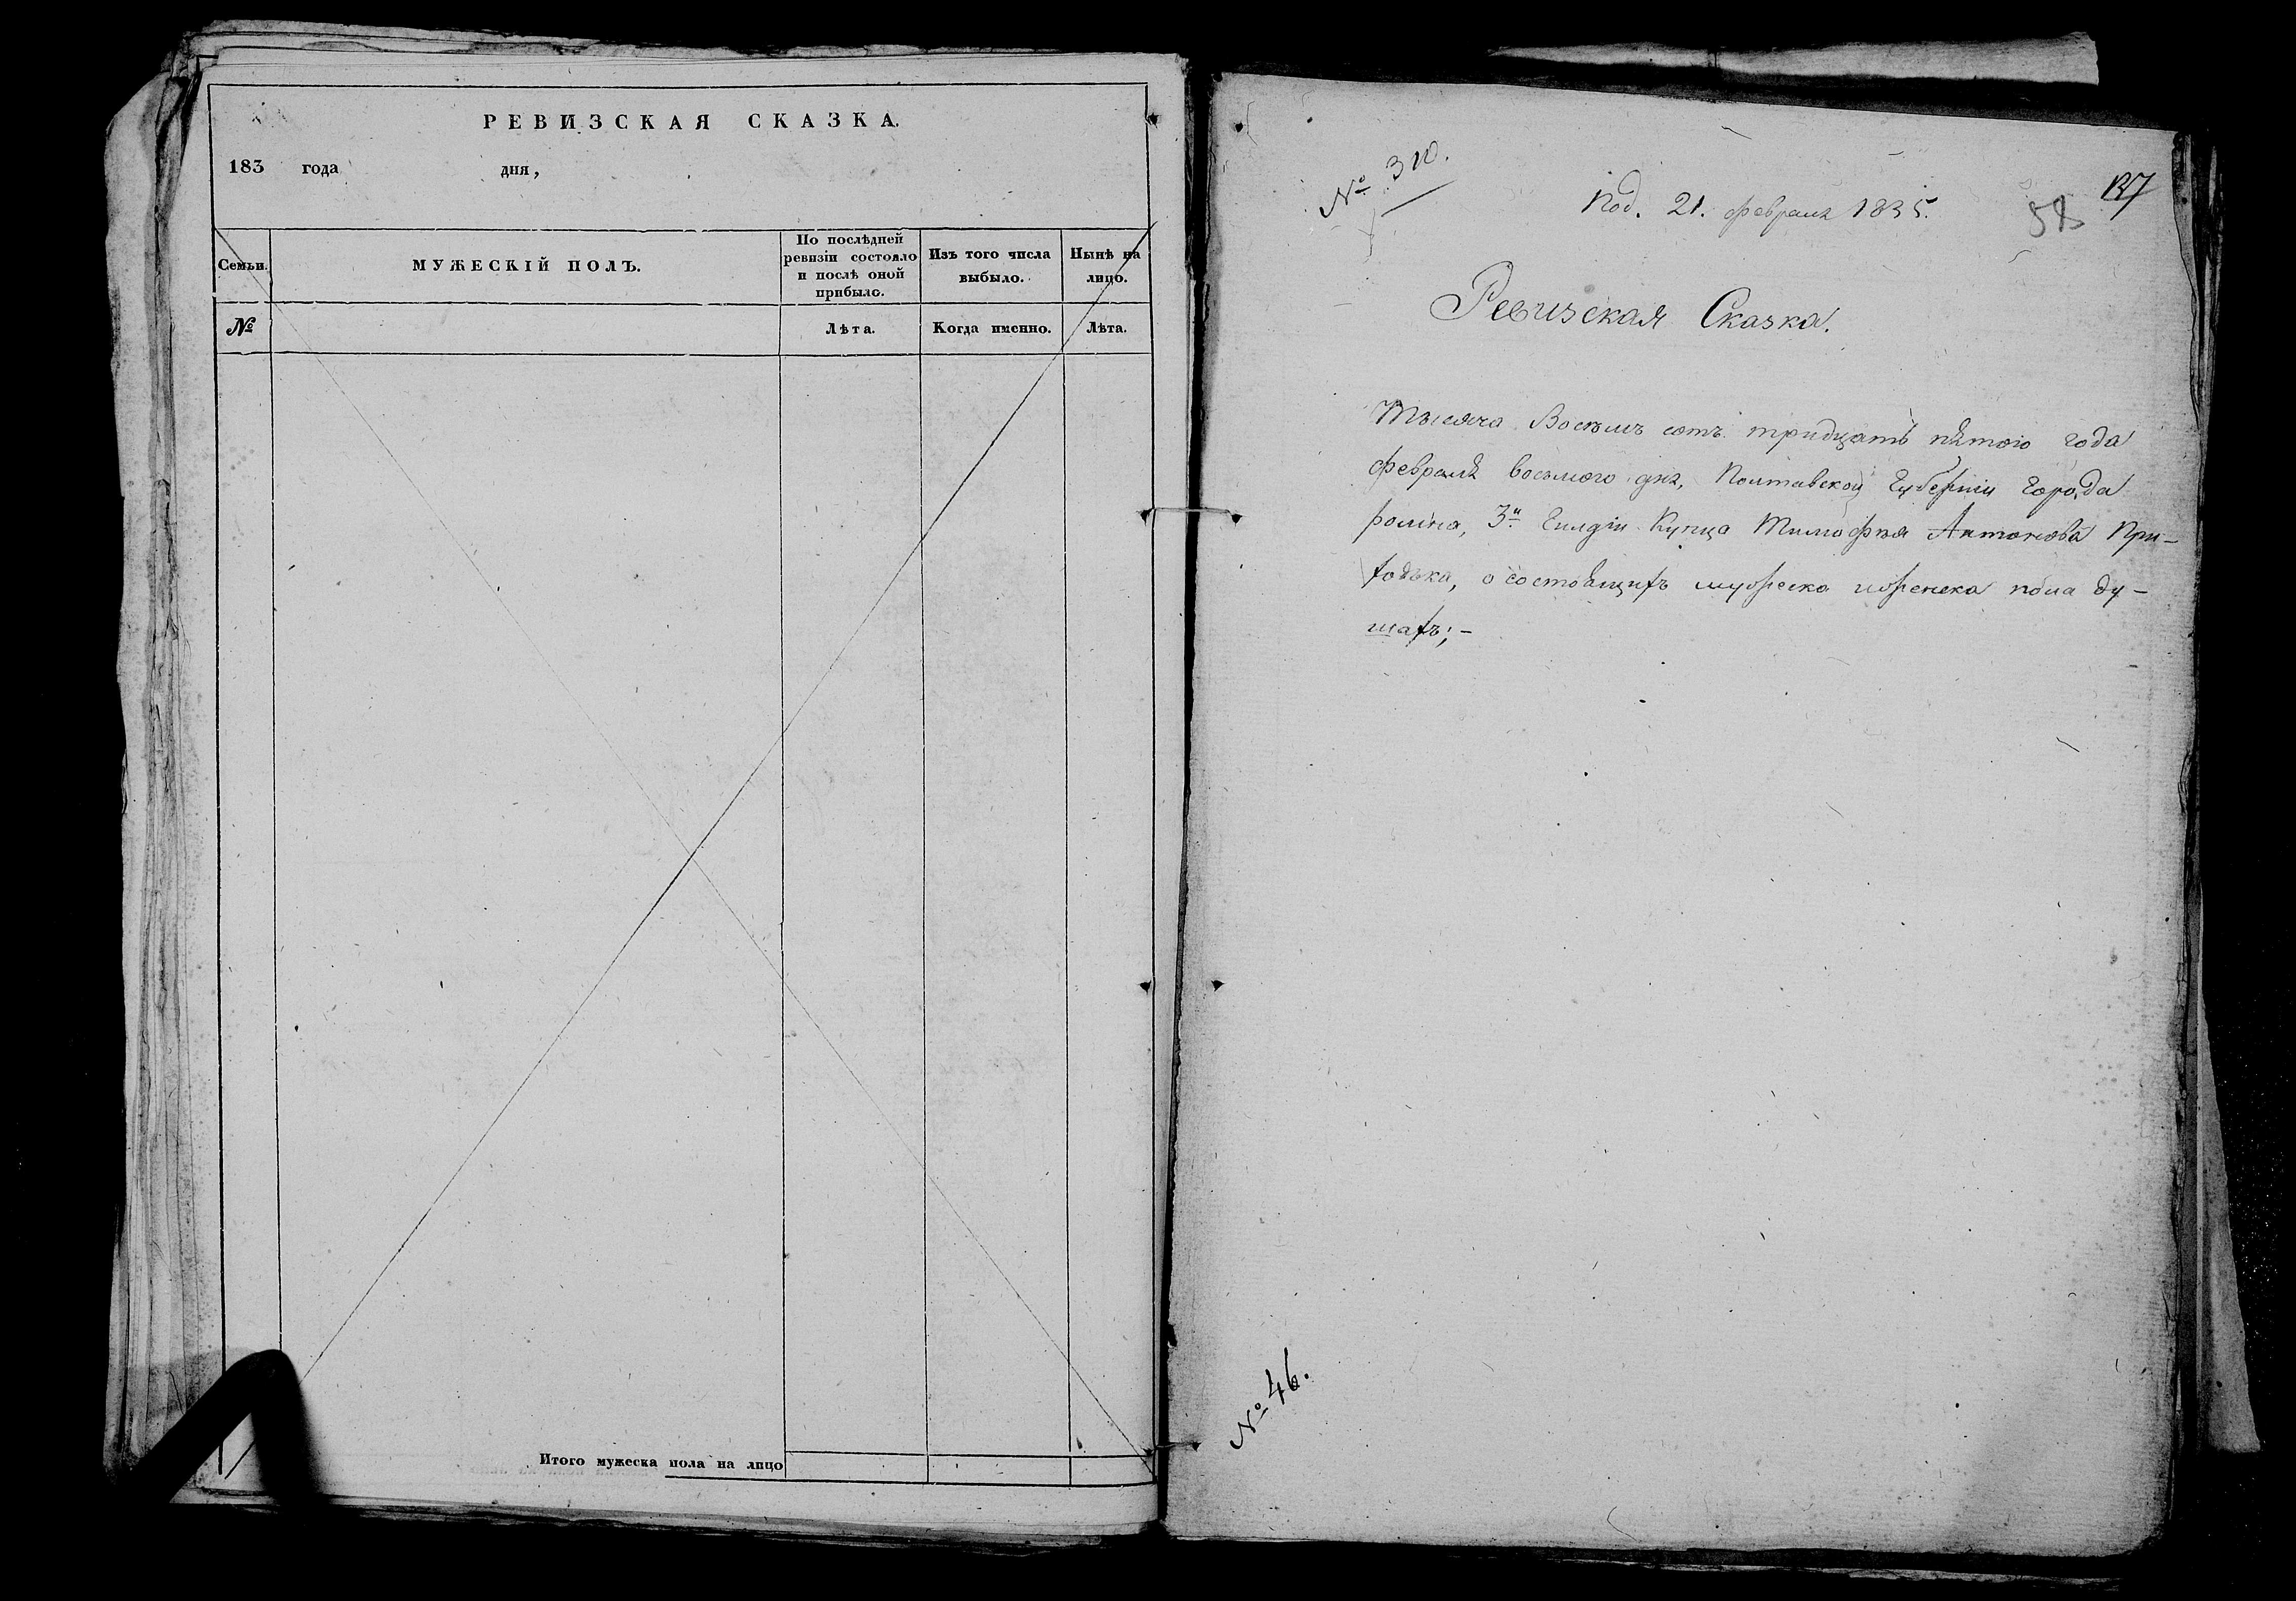 РЕВИЗСКАЯ СКАЗКА.
183 года дня,
Семьи.
МУЖЕСКІЙ ПОЛЪ.
По послѣдней
ревизіи состояло
и послѣ оной
прибыло.
Изъ того числа
выбыло.
Нынѣ на
лицо.
№
Лѣта.
Когда именно.
Лѣта.
Итого мужеска пола на лицо
№ 310.
Под. 21. февраля 1835.
137
58
Ревизская Сказка.
Тысяча Восемъ сотъ тридцать пятого года
февраля восьмого дня, Полтавской Губерніи города
ромна, 3й Гилдіи Купца Тимофѣя Антонова При-
ходька, о состоящихъ мужеска иженска пола ду-
шахъ;-
№ 46.